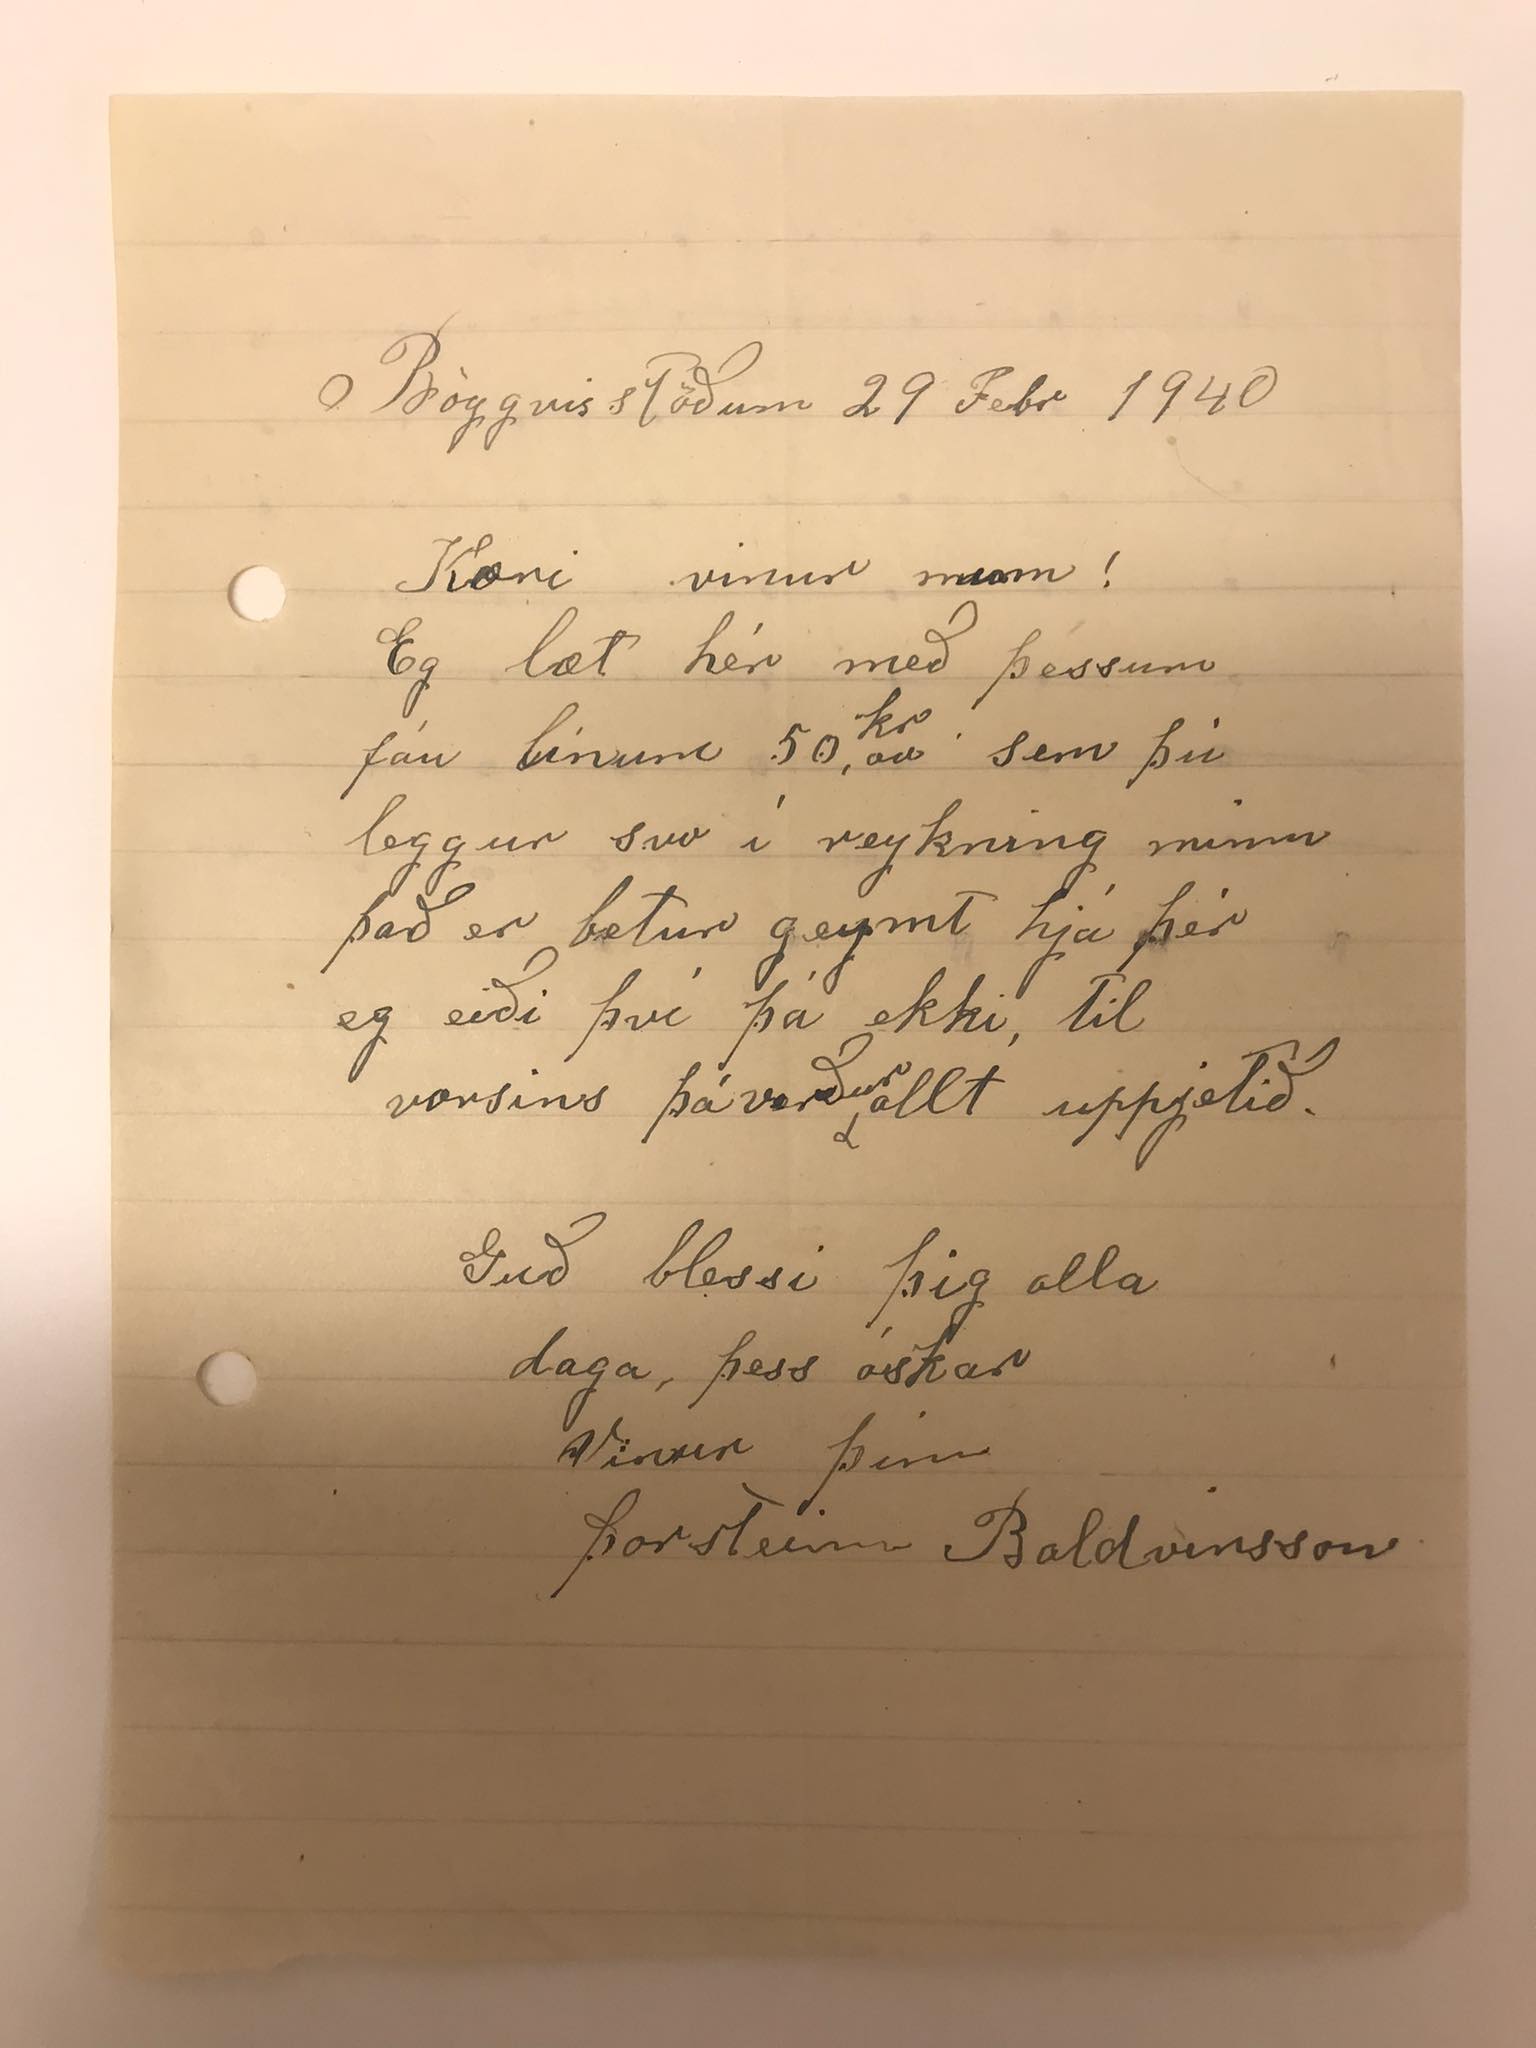 Böggvisstöðum 29 Febr 1940
Kæri vinur minn!
Eg læt hér með þessum
fáu línum 50,00 kr sem þú
leggur svo í reykning minn
það er betur geymt hjá þér
eg eiði því þá ekki, til
vorsins þá verður allt uppjetið.
Guð blessi þig alla
daga, þess óskar
Vinur þinn
Þorsteinn Baldvinsson